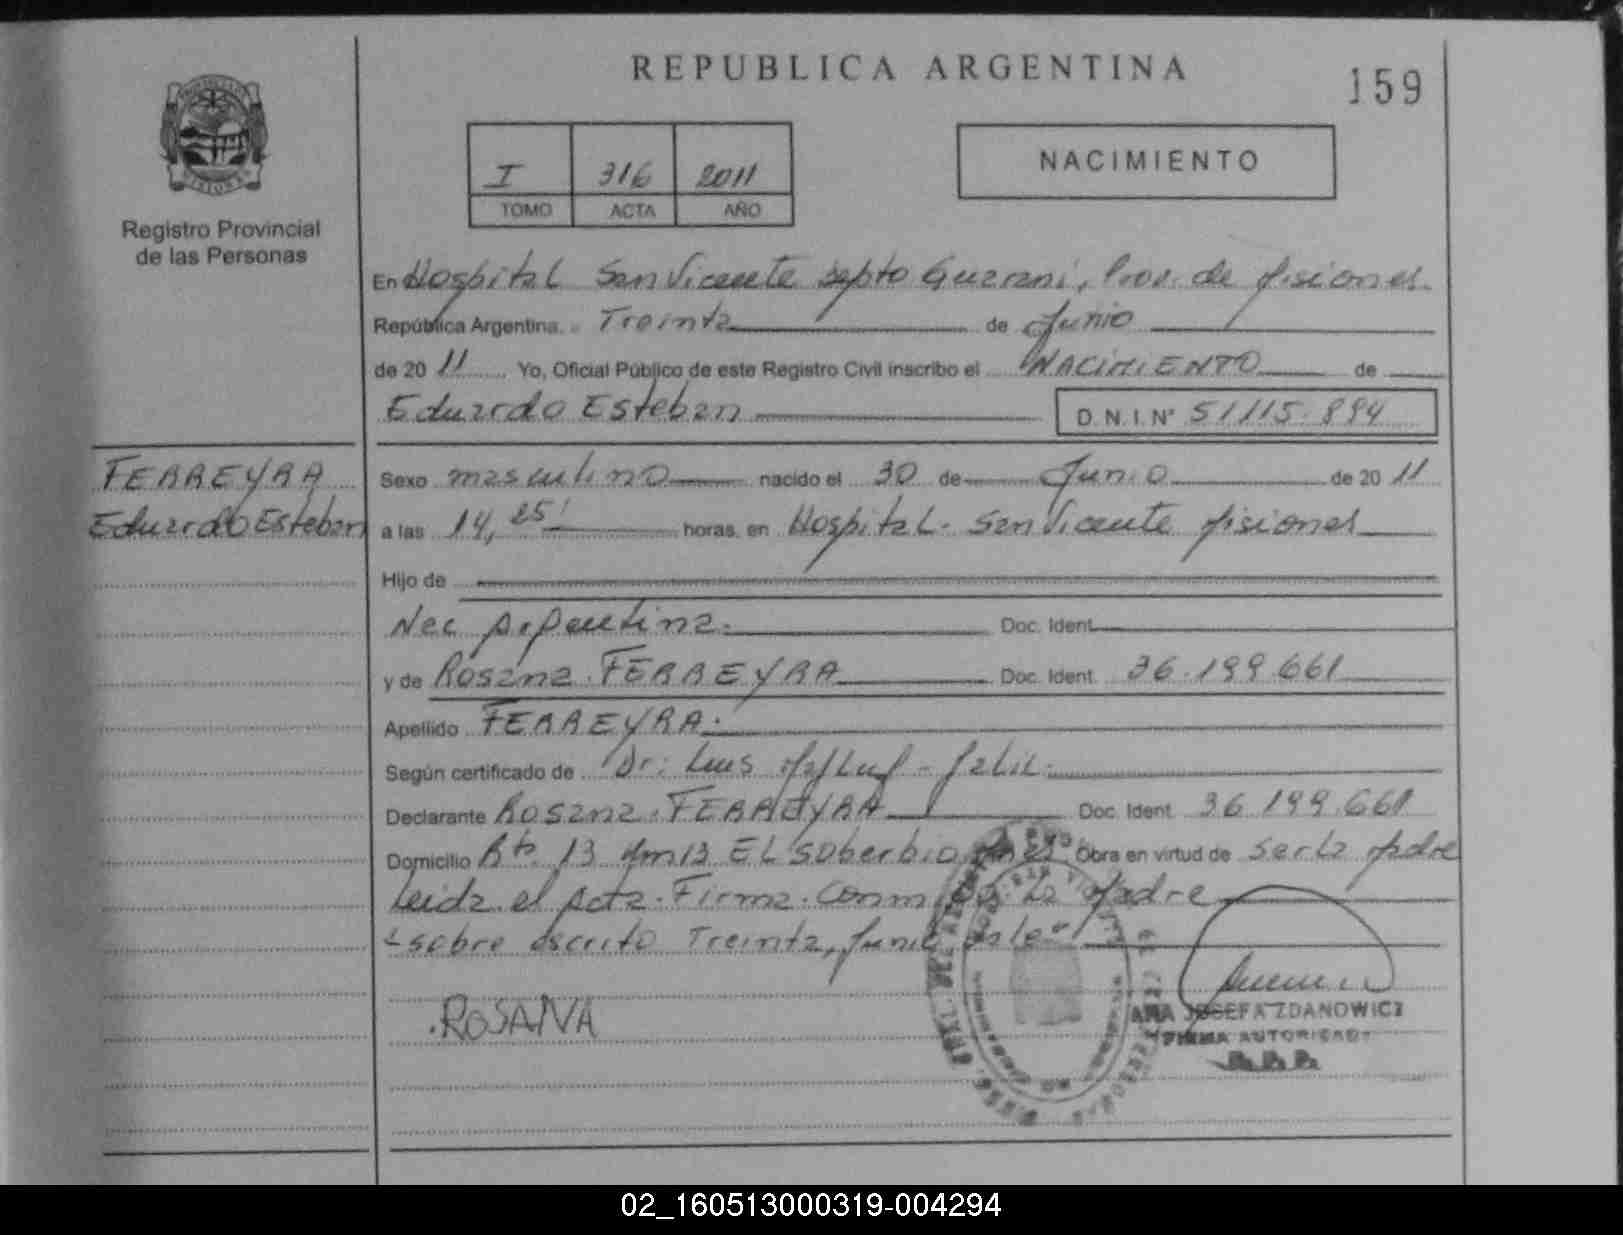 REPUBLICA ARGENTINA
159
I 316 2011
TOMO ACTA AÑO
NACIMIENTO
Registro Provincial
de las Personas
En Hospital San Vicente Depto Guarani, Prov. de Misiones.
República Argentina. a Treinta de Junio
de 20 11 Yo, Oficial Público de este Registro Civil inscribo el NACIMIENTO de
Eduardo Esteban D.N.I. N° 51.115.894
FERREYRA
Eduardo Esteban
Sexo masculino nacido el 30 de Junio de 20 11
a las 14,25' horas, en Hospital - San Vicente Misiones
Hijo de
Nac Argentina. Doc. Ident.
y de Rosana FERREYRA Doc. Ident. 36.199.661
Apellido FERREYRA.
Según certificado de Dr: Luis
Declarante Rosana FERREYRA Doc. Ident. 36.199.661
Domicilio Rta 13 Km13 EL Soberbio Obra en virtud de ser la Madre
Leida el Acta. Firma. La Madre
sobre escrito Treinta, Junio
ROSANA
ANA JOSEFA ZDANOWICZ
FIRMA AUTORIZADA
02_160513000319-004294